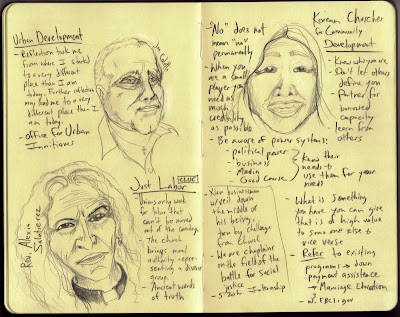 Urban Development
- Reflection took me
from where I started
to a very different
place than I am
today. Further reflection
may lead me to a very
different place than I
am today.
- Office for Urban
Initiatives
Just Labor
CLUE
- Union only work
for labor that
can't be moved
out of the country.
- The church
brings moral
authority repre-
senting a diverse
group.
- Ancient words
of truth
Rev. Alexia
- "No" does not
mean "no"
permanently
- When you
are a small
player you
need as
much
credibility
as possible
- Be aware of power systems:
- political power
- business
- Media
- Good Cause
Know their
needs +
use them for your
needs
businessman
unveil down
the middle of
his being,
torn by challenge
from Church
- We are chaplains
on the field of the
battle for social
justice
Internship
Korean Churches
for Community
Development
- Know who you are
- Don't let others
define you
- Partner for
borrowed
capacity
- learn from
others
- What is something
you have you can give
that is of high value
to some one else &
vice versa
- Refer to existing
programs → down
payment assistance
→ Marriage Education